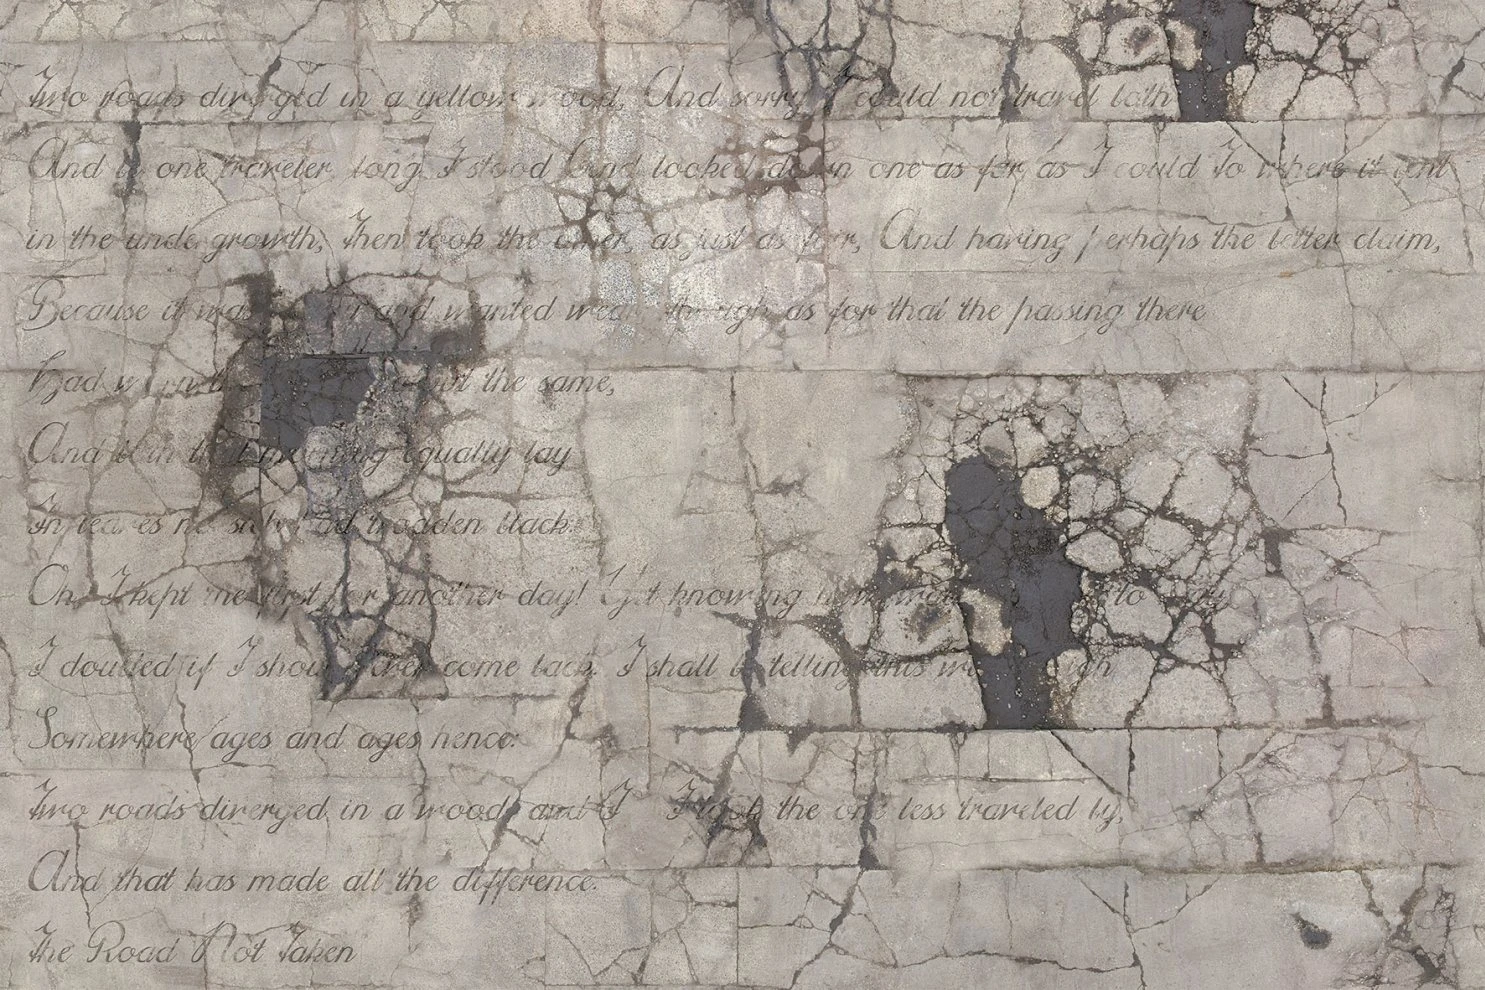 Two roads diverged in a yellow wood, And sorry I could not travel both
And be one traveler, long I stood And looked down one as far as I could To where it bent
in the undergrowth; Then took the other, as just as fair, And having perhaps the better claim,
Because it was and wanted wear, though as for that the passing there
Had worn about the same,
And both that morning equally lay
In leaves no step had trodden black.
Oh, I kept the first for another day! Yet knowing how way to way
I doubted if I should ever come back. I shall be telling this with sigh
Somewhere ages and ages hence:
Two roads diverged in a wood, and I I took the one less traveled by,
And that has made all the difference.
The Road Not Taken